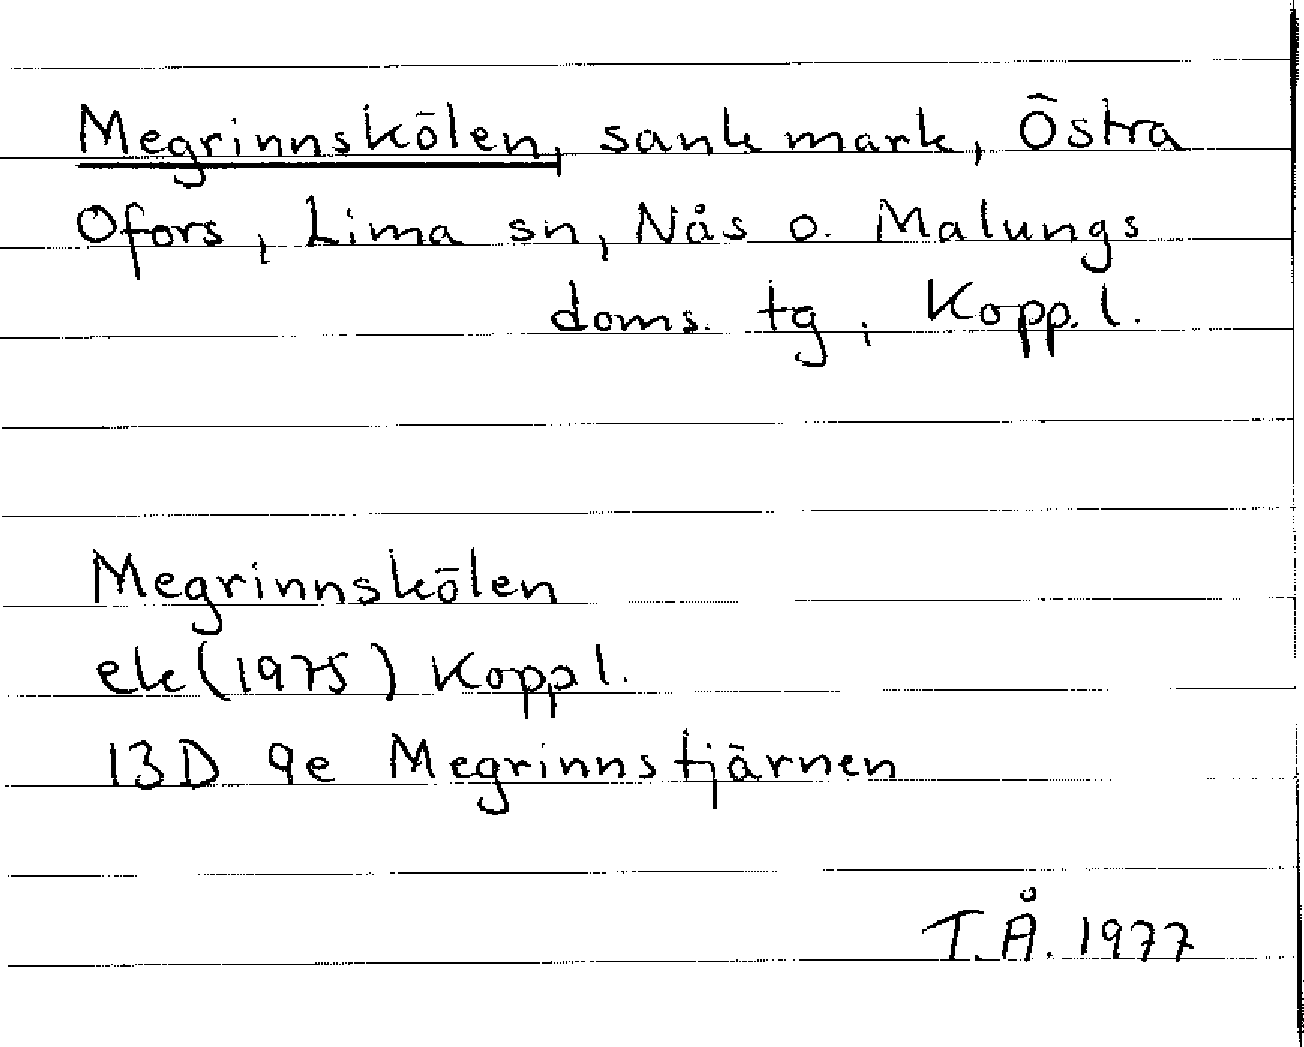 Megrinnskölen, sank mark, Östra
Ofors, Lima sn, Nås o. Malungs
doms. tg, Kopp. l.
Megrinnskölen
ek (1975) Koppl.
13D 9e Megrinnstjärnen
T.Å. 1977